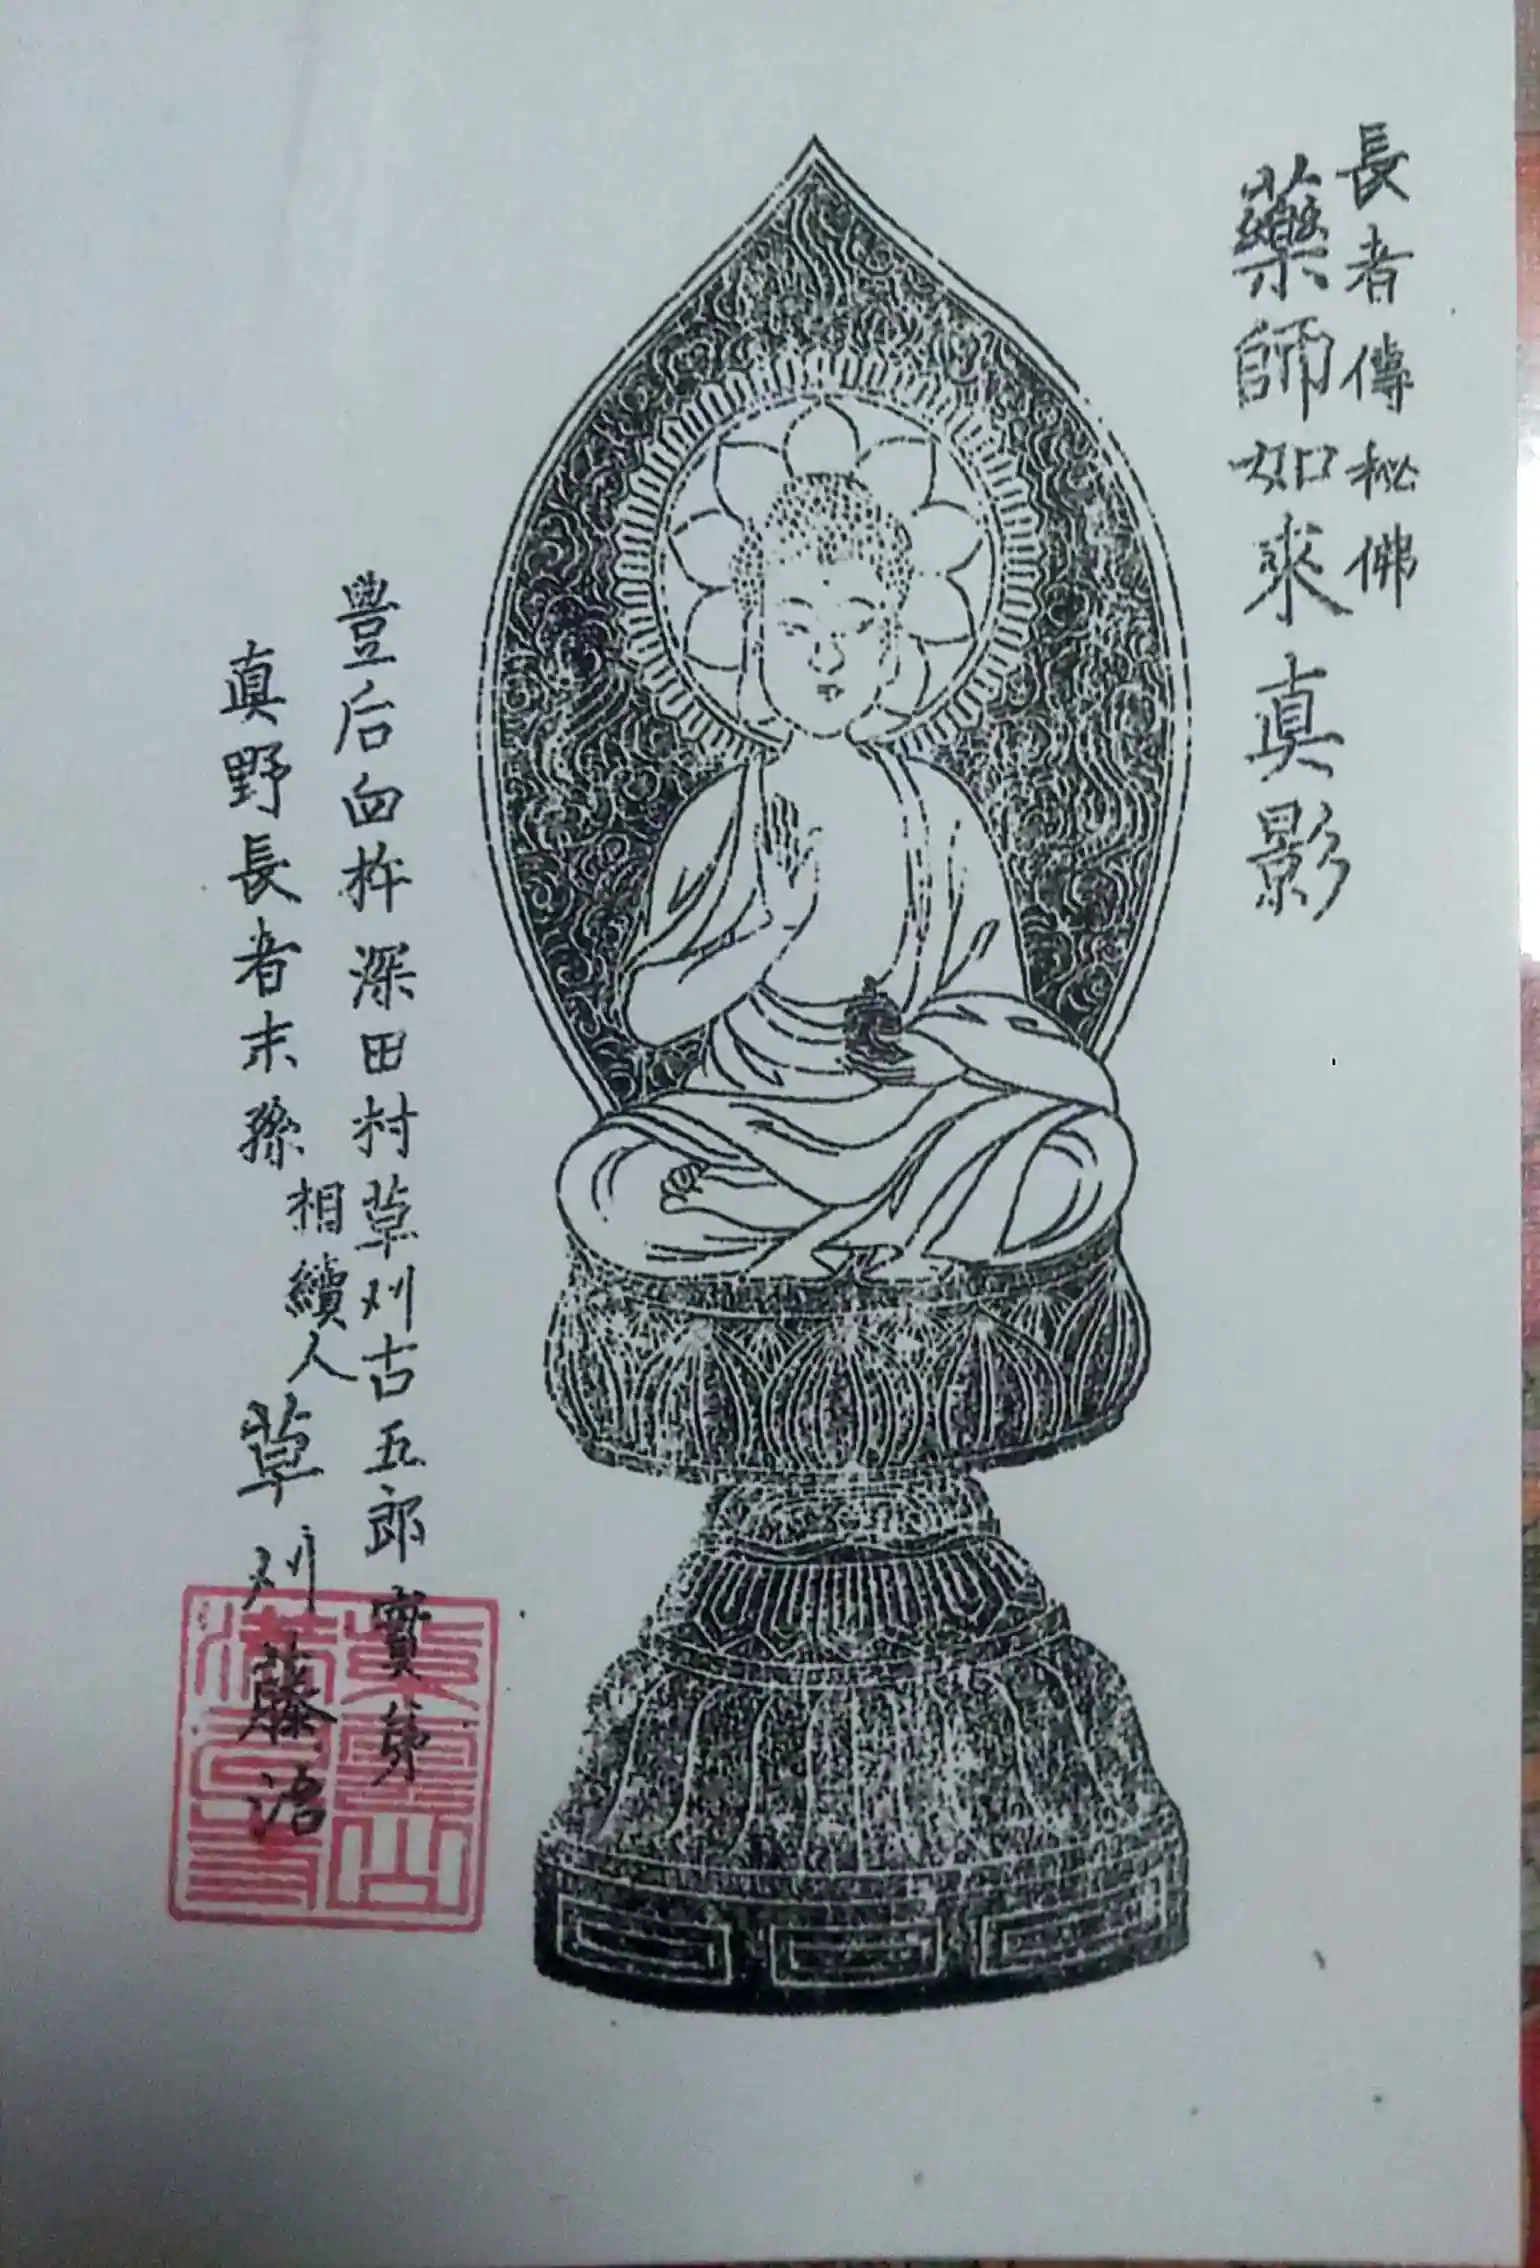 長者傳秘佛
藥師如来真影
豊后臼杵深田村草刈古五郎實弟
真野長者末孫
相續人
草刈藤治